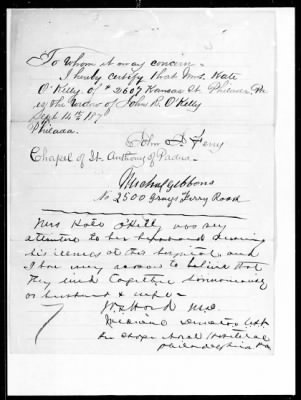 To whom it may concern.
I hereby certify that Mrs. Kate
O'Kelly, of # 2607 Kansas St. Philada. Pa
is the widow of John R. O'Kelly
Sept 14th 187
Philada.
John D. Ferry
Chapel of St. Anthony of Padua.
Michael Gibbons
No 2500 Grays Ferry Road
Mrs Kate O'Kelly was very
attentive to her husband during
his illness at this hospital and
I have every reason to believe that
they lived together harmoniously
as husband & wife
Hord M.D.
Medical Director U.S.N.
in charge Naval Hospital
Philadelphia Pa